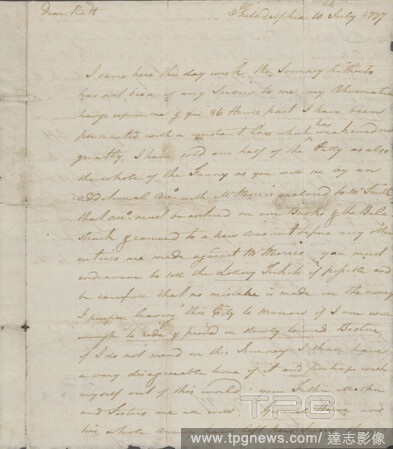 Dear Piatt
Philadelphia 10 July 1777
I came here this day week the Journey hitherto
has not been of any Service to me, my Rheumatism
hangs upon me & for 36 Hours past I have been
tormented with a constant which has weakened me
greatly, I have sold one half of the Patty as also
the whole of the as you will see by an
additional with Mr Morris enclosed to Mr Smith
that must be entered on our Books & the Balance
Struck & carried to a new Account before any other
entries are made against Mr Morris. you must
endeavour to sell the Lottery Tickets if possible and
be careful that no mistake is made in the
I propose leaving this City to Morrow if I am well
enough to ride & proceed on slowly toward Boston
if I do not mend on this Journey I shall have
a very disagreeable time of it and perhaps with
myself out of this world. your Father Mother
and Sisters are all well.
his whole
TPG
www.tpgnews.com/達志影像